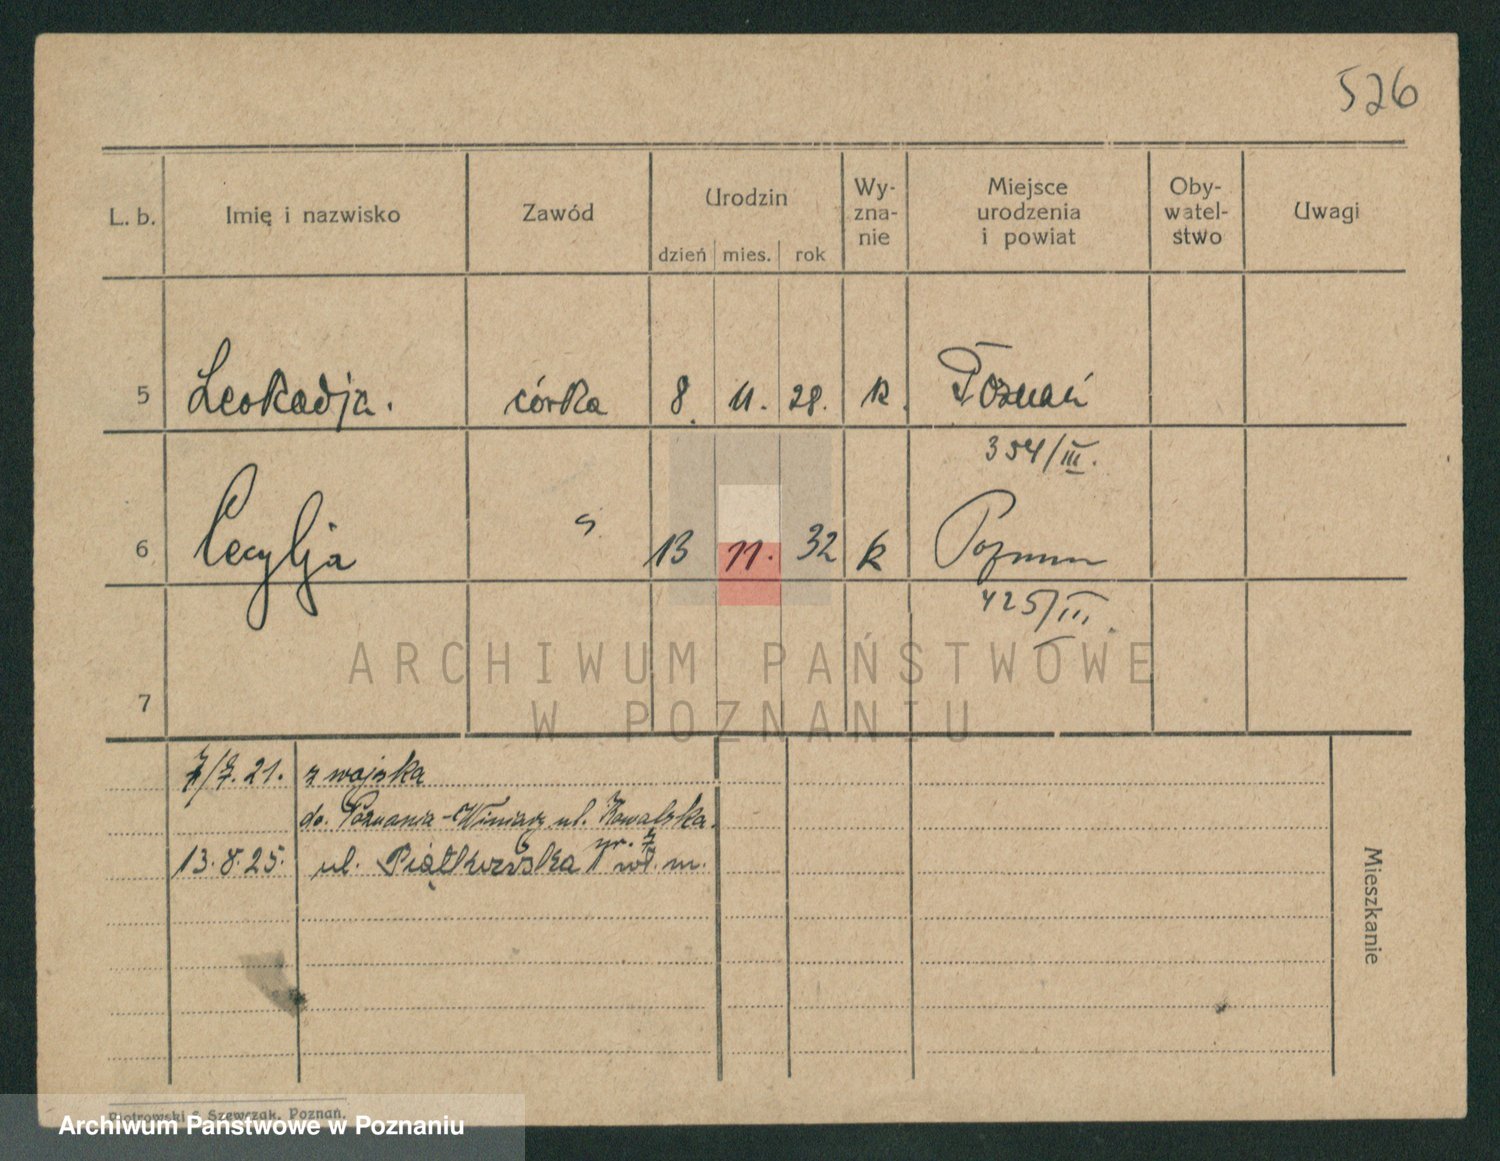 526
L. b. Imię i nazwisko Zawód Urodzin Wy-zna-nie Miejsce urodzenia i powiat Oby-watel-stwo Uwagi
dzień mies. rok
5 Leokadja. córka 8. 11. 28. k. Poznań
354/III.
6 Cecylja " 13 11. 32 k Poznan
425/III.
7
ARCHIWUM PAŃSTWOWE
W POZNANIU
21. z wojska
do. Poznania-Winiary ul. Kowalska
nr. 7
13.8.25. ul. Piątkowska wł. m.
Mieszkanie
Piotrowski & Szewczak, Poznań.
Archiwum Państwowe w Poznaniu